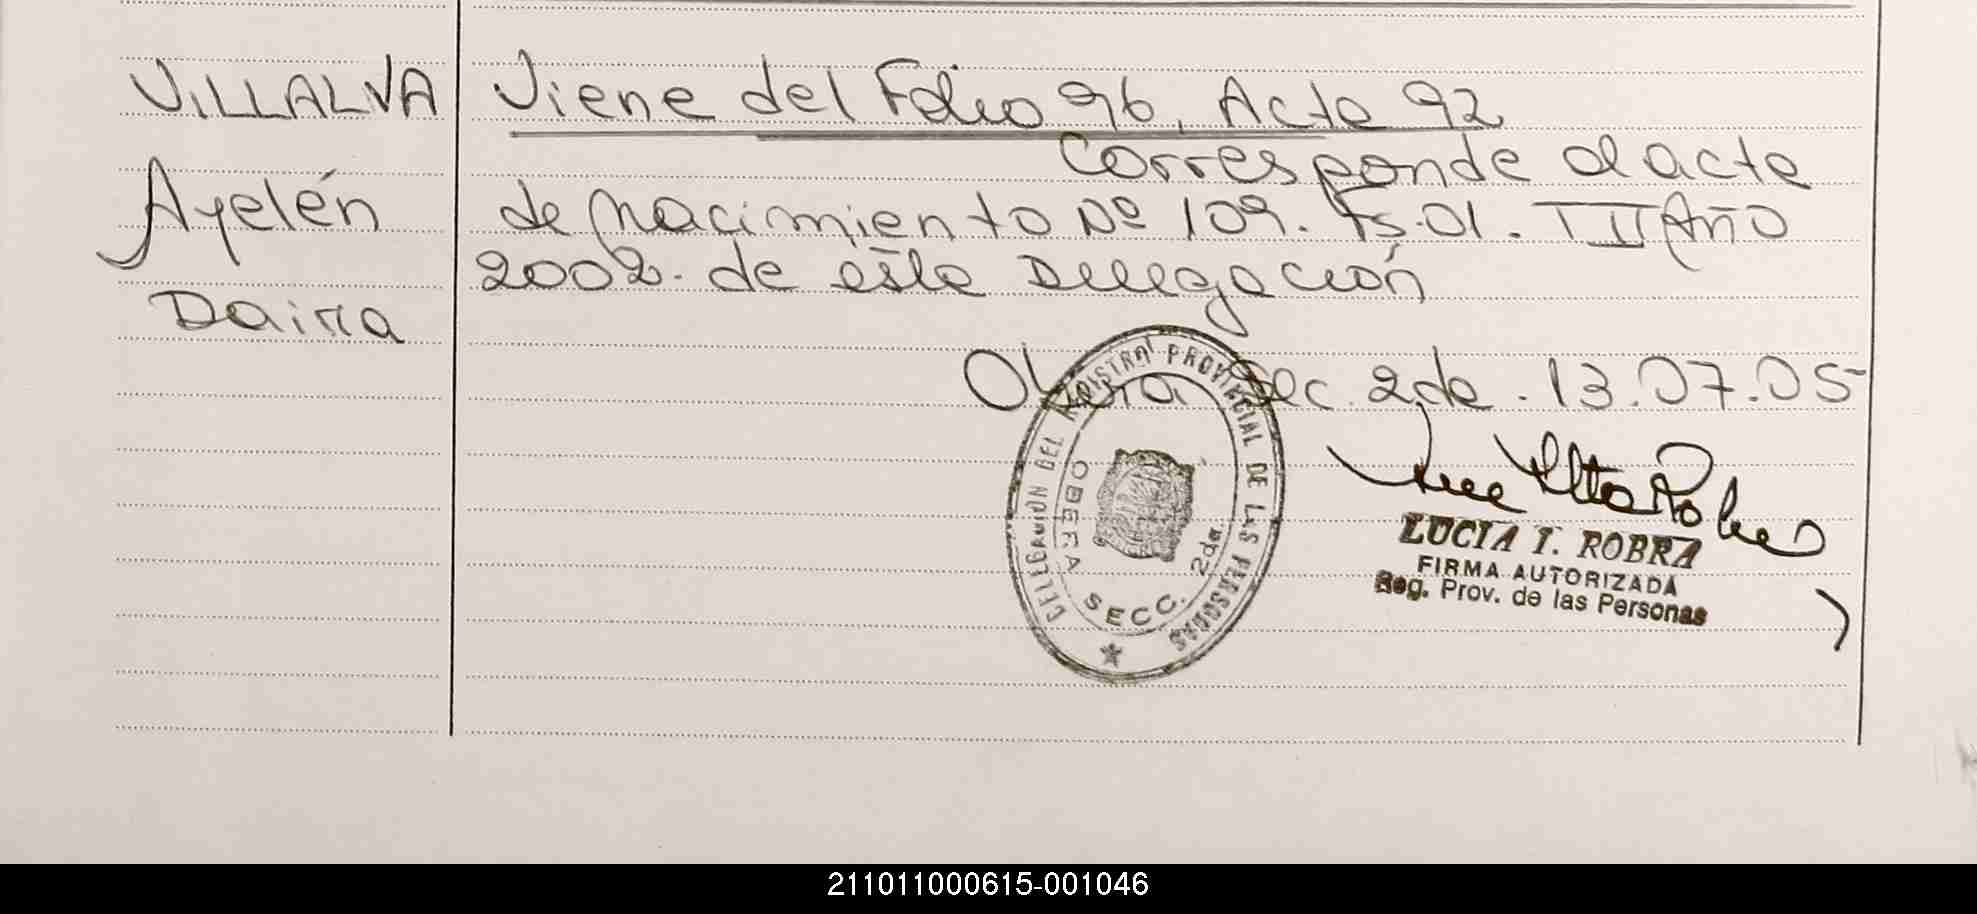 VILLALVA
Ayelén
Daira
Viene del Folio 96, Acta 92
Corresponde al acta
de Nacimiento Nº 109. Fs.01. T II Año
2002. de esta Delegación
Oberá Sec. 2da. 13.07.05-
DELEGACION DEL REGISTRO PROVINCIAL DE LAS PERSONAS
OBERA SECC. 2da
LUCIA I. ROBRA
FIRMA AUTORIZADA
Reg. Prov. de las Personas
211011000615-001046